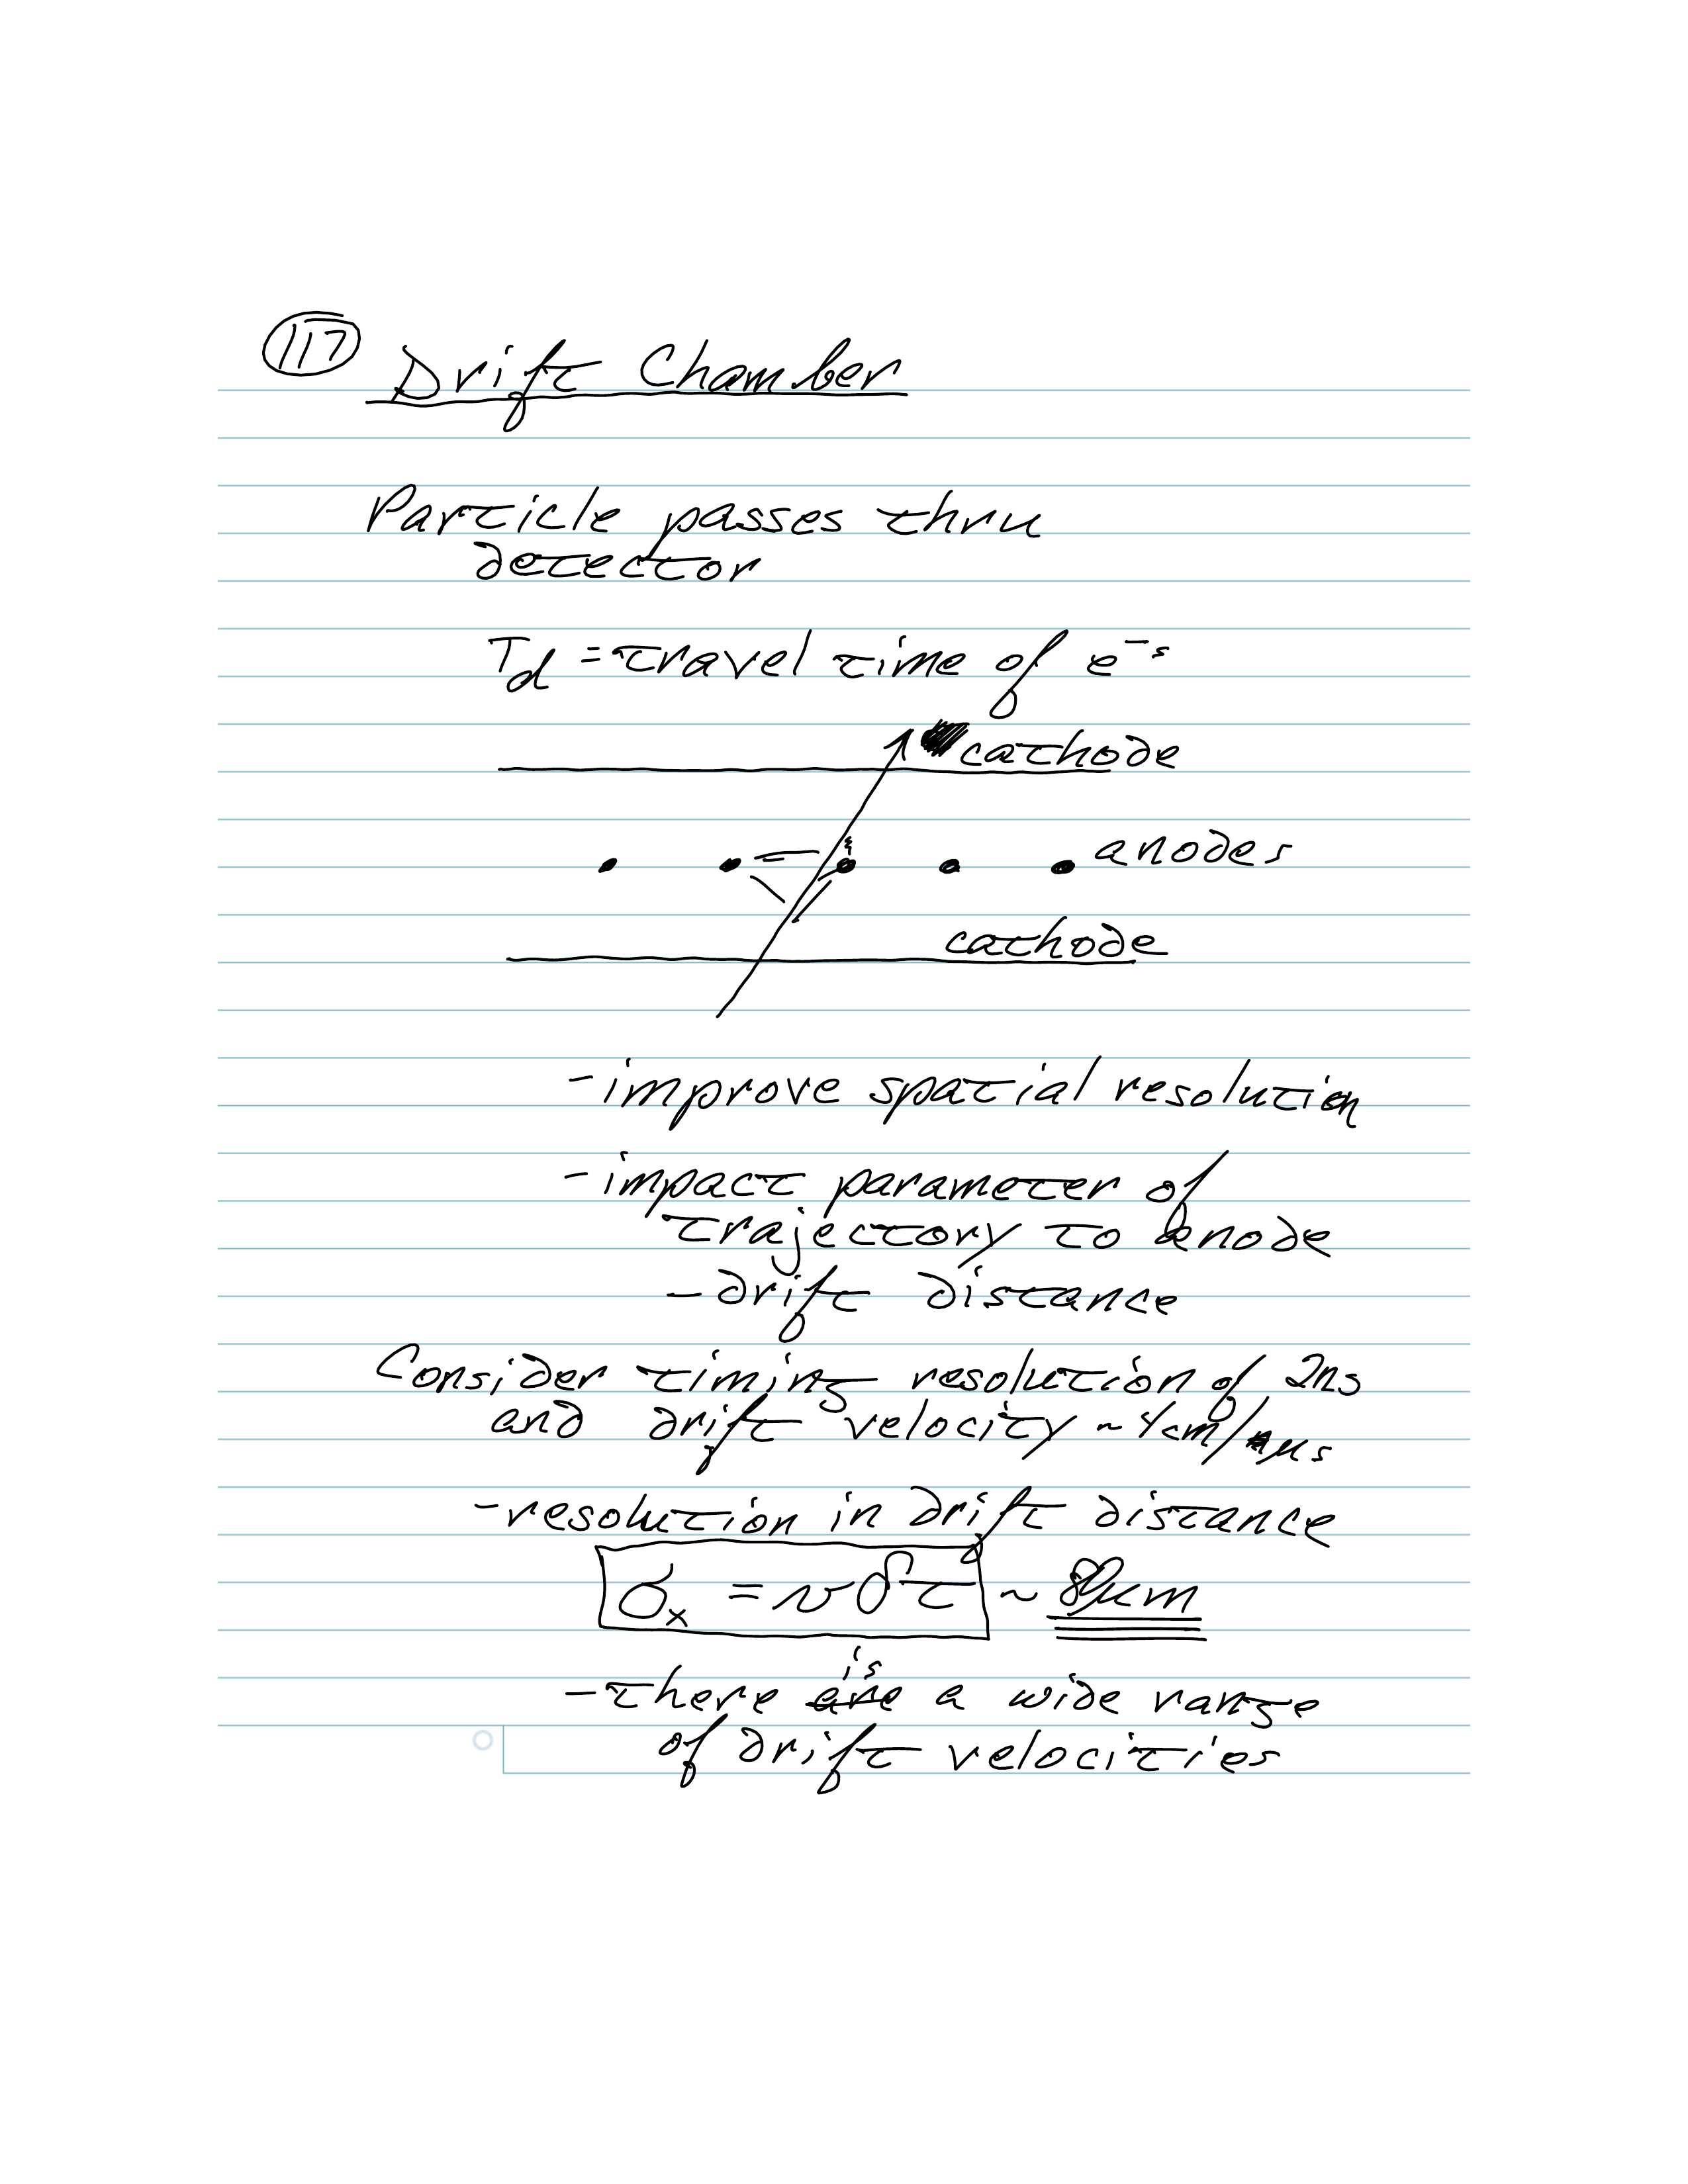 117 Drift Chamber
Particle passes thru
detector
T_d = travel time of e⁻s
cathode
anodes
cathode
- improve spatial resolution
- impact parameter of
trajectory to anode
- drift distance
Consider timing resolution of 2ns
and drift velocity ~ 4cm/μs
- resolution in drift distance
σₓ = v δt ~ 80μm
- there is a wide range
of drift velocities